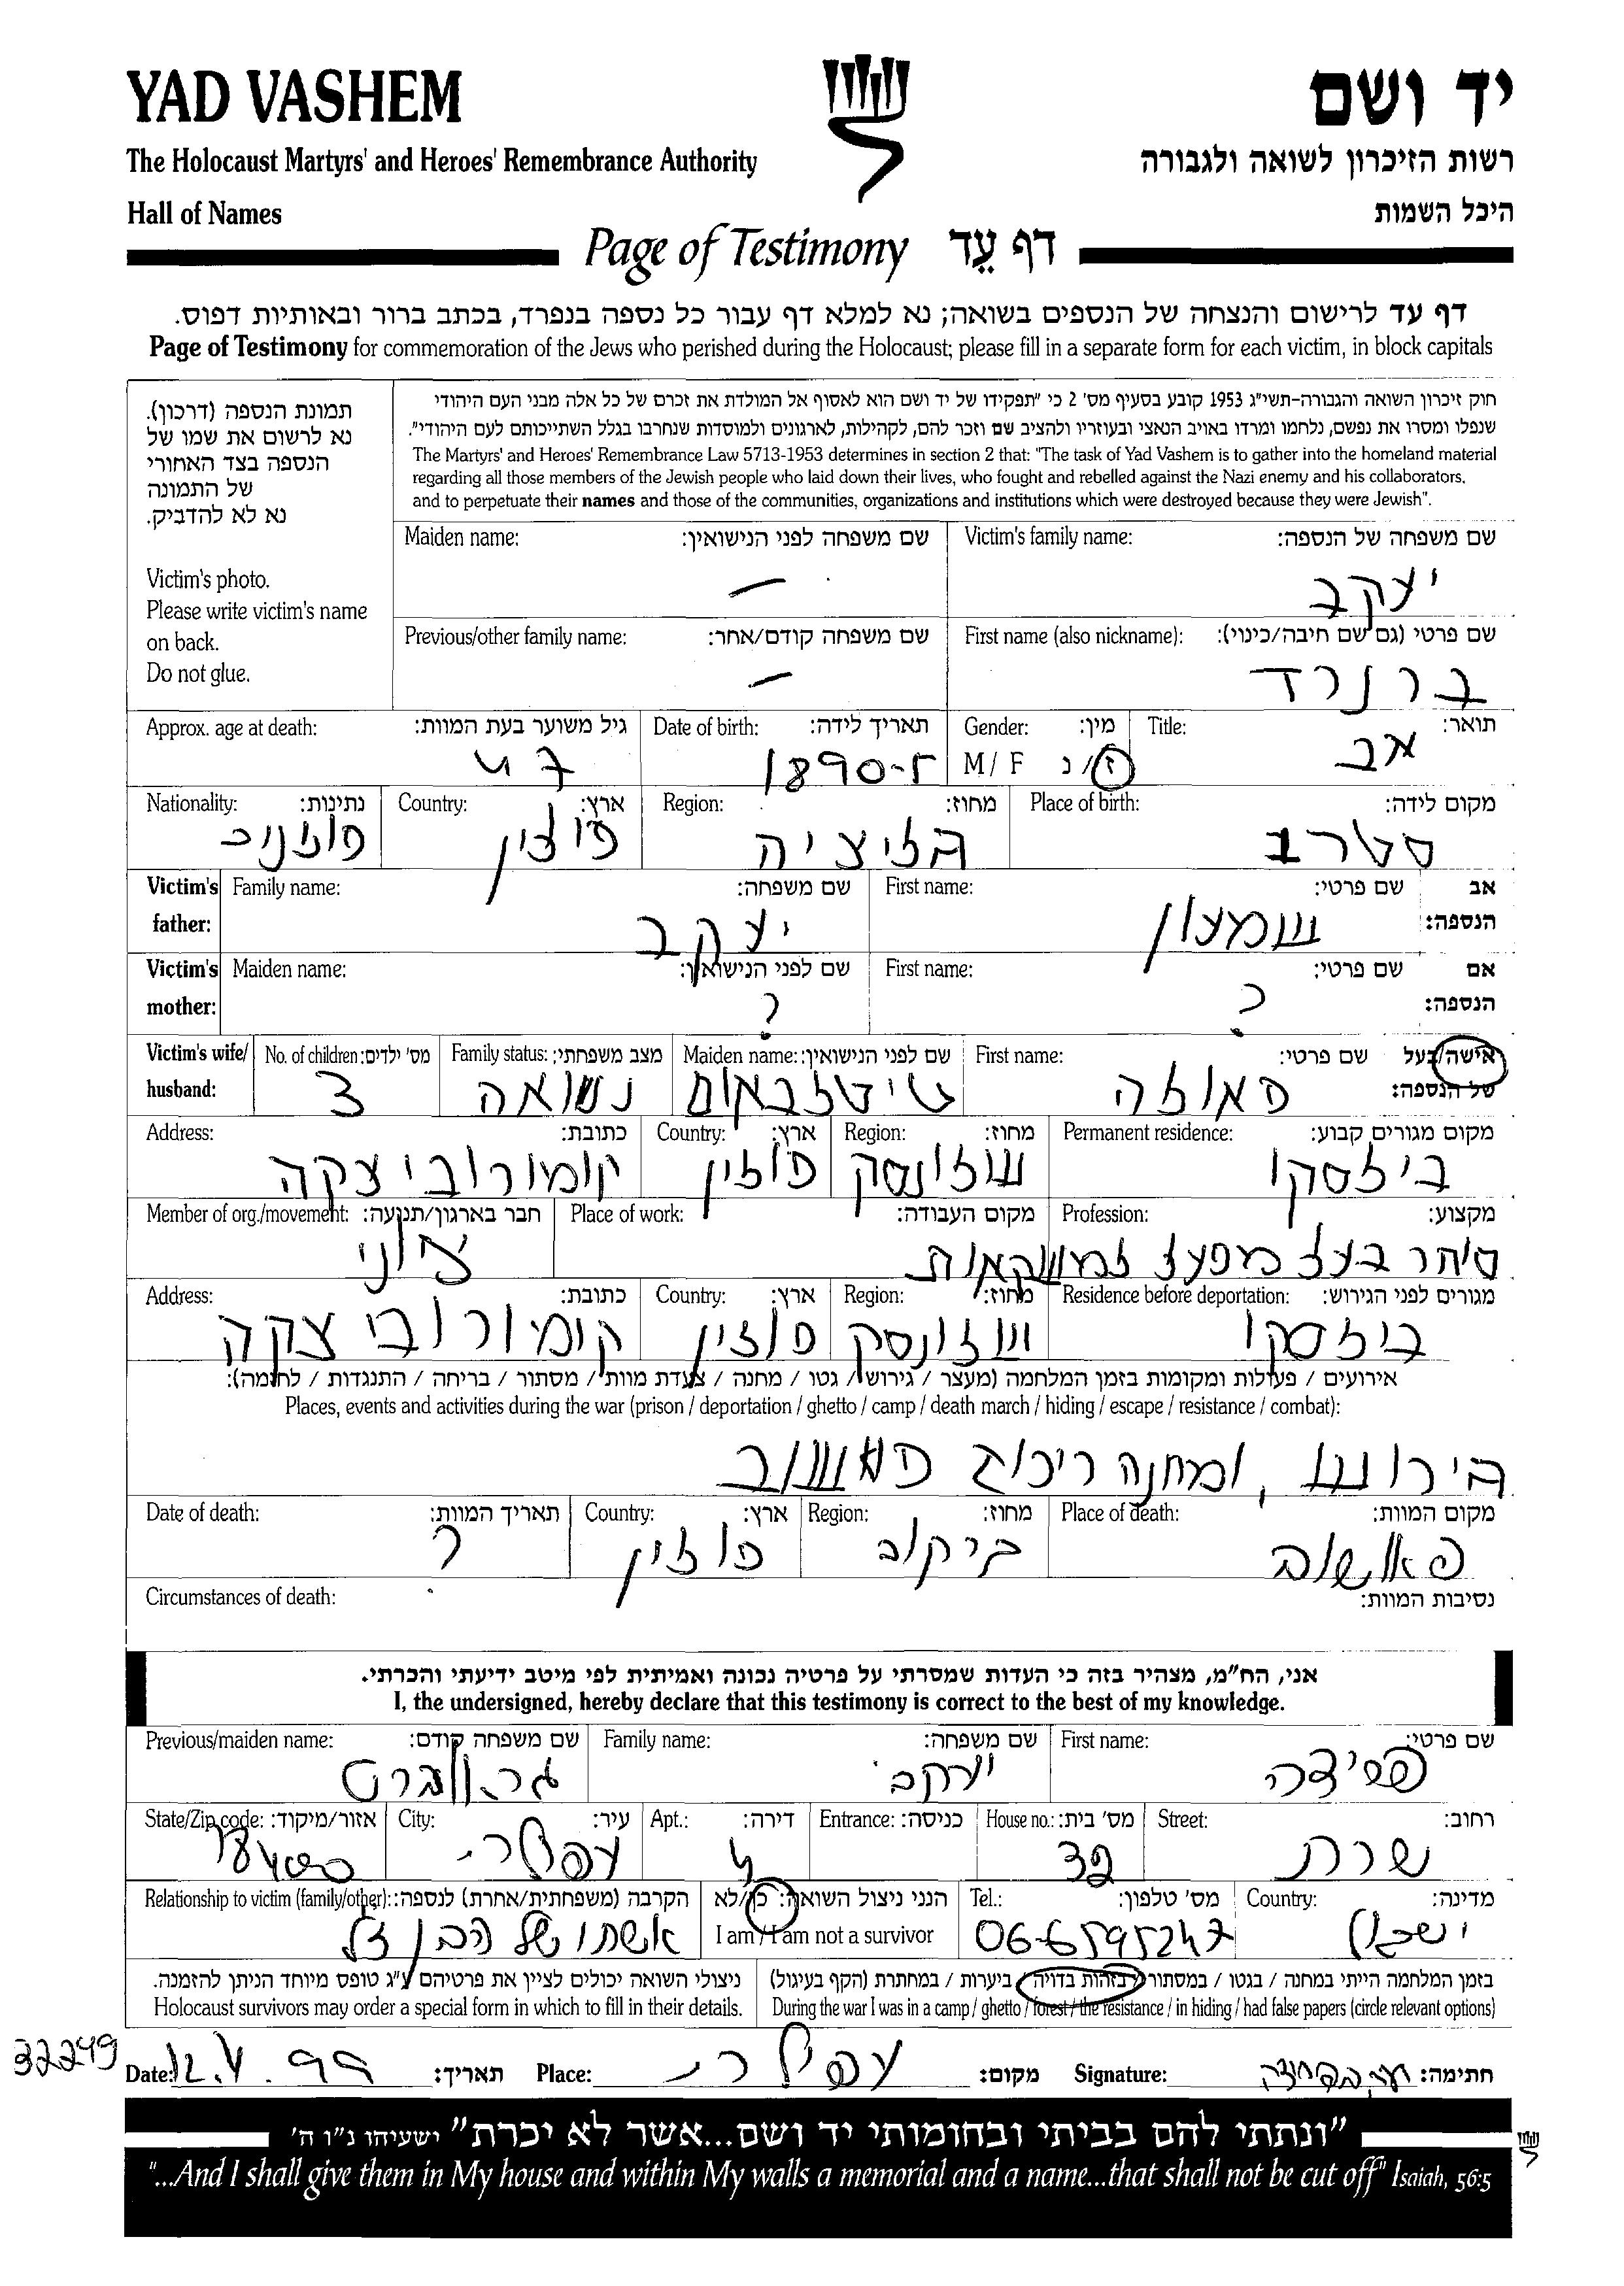 YAD VASHEM
יד ושם
The Holocaust Martyrs' and Heroes' Remembrance Authority
רשות הזיכרון לשואה ולגבורה
Hall of Names
היכל השמות
Page of Testimony דף עֵד
דף עד לרישום והנצחה של הנספים בשואה; נא למלא דף עבור כל נספה בנפרד, בכתב ברור ובאותיות דפוס.
Page of Testimony for commemoration of the Jews who perished during the Holocaust; please fill in a separate form for each victim, in block capitals
תמונת הנספה (דרכון).
נא לרשום את שמו של
הנספה בצד האחורי
של התמונה
נא לא להדביק.
Victim's photo.
Please write victim's name
on back.
Do not glue.
חוק זיכרון השואה והגבורה-תשי"ג 1953 קובע בסעיף מס' 2 כי "תפקידו של יד ושם הוא לאסוף אל המולדת את זכרם של כל אלה מבני העם היהודי
שנפלו ומסרו את נפשם, נלחמו ומרדו באויב הנאצי ובעוזריו ולהציב שם וזכר להם, לקהילות, לארגונים ולמוסדות שנחרבו בגלל השתייכותם לעם היהודי".
The Martyrs' and Heroes' Remembrance Law 5713-1953 determines in section 2 that: "The task of Yad Vashem is to gather into the homeland material
regarding all those members of the Jewish people who laid down their lives, who fought and rebelled against the Nazi enemy and his collaborators,
and to perpetuate their names and those of the communities, organizations and institutions which were destroyed because they were Jewish".
Victim's family name: שם משפחה של הנספה:
יעקב
Maiden name: שם משפחה לפני הנישואין:
—
First name (also nickname): שם פרטי (גם שם חיבה/כינוי):
ברנרד
Previous/other family name: שם משפחה קודם/אחר:
—
Title: תואר:
אב
Gender: מין:
M / F ז/נ
Date of birth: תאריך לידה:
1890-
Approx. age at death: גיל משוער בעת המוות:
Place of birth: מקום לידה:
Region: מחוז:
גליציה
Country: ארץ:
פולין
Nationality: נתינות:
פולניה
Victim's father: אב הנספה:
First name: שם פרטי:
שמעון
Family name: שם משפחה:
יעקב
Victim's mother: אם הנספה:
First name: שם פרטי:
?
Maiden name: שם לפני הנישואין:
?
Victim's wife/husband: אישה/בעל של הנספה:
First name: שם פרטי:
פאולה
Maiden name: שם לפני הנישואין:
טיטלבאום
Family status: מצב משפחתי:
נשואה
No. of children: מס' ילדים:
3
Permanent residence: מקום מגורים קבוע:
בילסקו
Region: מחוז:
שלונסק
Country: ארץ:
פולין
Address: כתובת:
קומורוביצקה
Profession: מקצוע:
סוחר בעל מפעל למשקאות
Place of work: מקום העבודה:
Member of org./movement: חבר בארגון/תנועה:
ציוני
Residence before deportation: מגורים לפני הגירוש:
בילסקו
Region: מחוז:
שלונסק
Country: ארץ:
פולין
Address: כתובת:
קומורוביצקה
אירועים / פעולות ומקומות בזמן המלחמה (מעצר / גירוש / גטו / מחנה / צעדת מוות / מסתור / בריחה / התנגדות / לחימה):
Places, events and activities during the war (prison / deportation / ghetto / camp / death march / hiding / escape / resistance / combat):
גירוש, ומחנה ריכוז פלאשוב
Place of death: מקום המוות:
פלאשוב
Region: מחוז:
Country: ארץ:
פולין
Date of death: תאריך המוות:
?
Circumstances of death: נסיבות המוות:
אני, הח"מ, מצהיר בזה כי העדות שמסרתי על פרטיה נכונה ואמיתית לפי מיטב ידיעתי והכרתי.
I, the undersigned, hereby declare that this testimony is correct to the best of my knowledge.
First name: שם פרטי:
Family name: שם משפחה:
יעקב
Previous/maiden name: שם משפחה קודם:
Street: רחוב:
שרת
House no.: מס' בית:
32
Entrance: כניסה:
Apt.: דירה:
4
City: עיר:
עפולה
State/Zip code: אזור/מיקוד:
Country: מדינה:
ישראל
Tel.: מס' טלפון:
06-6595247
הנני ניצול השואה: כן/לא
I am / I am not a survivor
Relationship to victim (family/other): הקרבה (משפחתית/אחרת) לנספה:
אשתו של הבן ז"ל
בזמן המלחמה הייתי במחנה / בגטו / במסתור / בזהות בדויה / ביערות / במחתרת (הקף בעיגול)
During the war I was in a camp / ghetto / forest / the resistance / in hiding / had false papers (circle relevant options)
ניצולי השואה יכולים לציין את פרטיהם ע"ג טופס מיוחד הניתן להזמנה.
Holocaust survivors may order a special form in which to fill in their details.
32249
Date: 12.4.99 תאריך: Place: מקום: Signature: חתימה:
"ונתתי להם בביתי ובחומותי יד ושם...אשר לא יכרת" ישעיהו נ"ו ה'
"...And I shall give them in My house and within My walls a memorial and a name...that shall not be cut off" Isaiah, 56:5